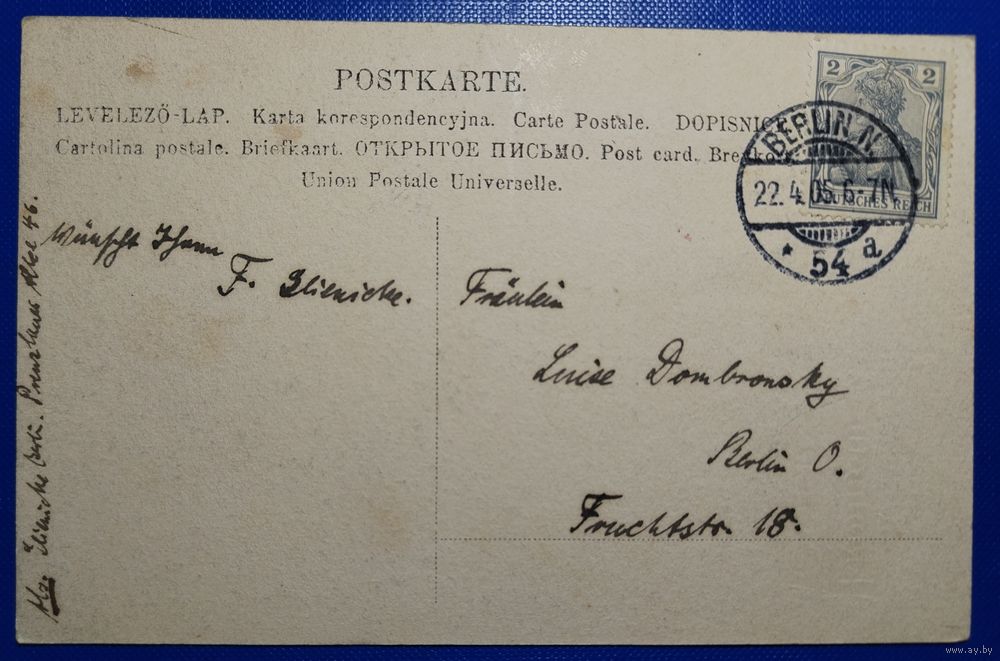 POSTKARTE.
LEVELEZŐ-LAP. Karta korespondencyjna. Carte Postale. DOPISNICE
Cartolina postale. Briefkaart. ОТКРЫТОЕ ПИСЬМО. Post card.
Union Postale Universelle.
2 2
DEUTSCHES REICH
BERLIN N.
22.4.05.6-7N
* 54 a
Wünscht Ihnen
F. Glienicke.
Fräulein
Luise Dombronsky
Berlin O.
Fruchtstr. 18.
Glienicke Berlin. Prenzlauer Allee 46.
www.ay.by